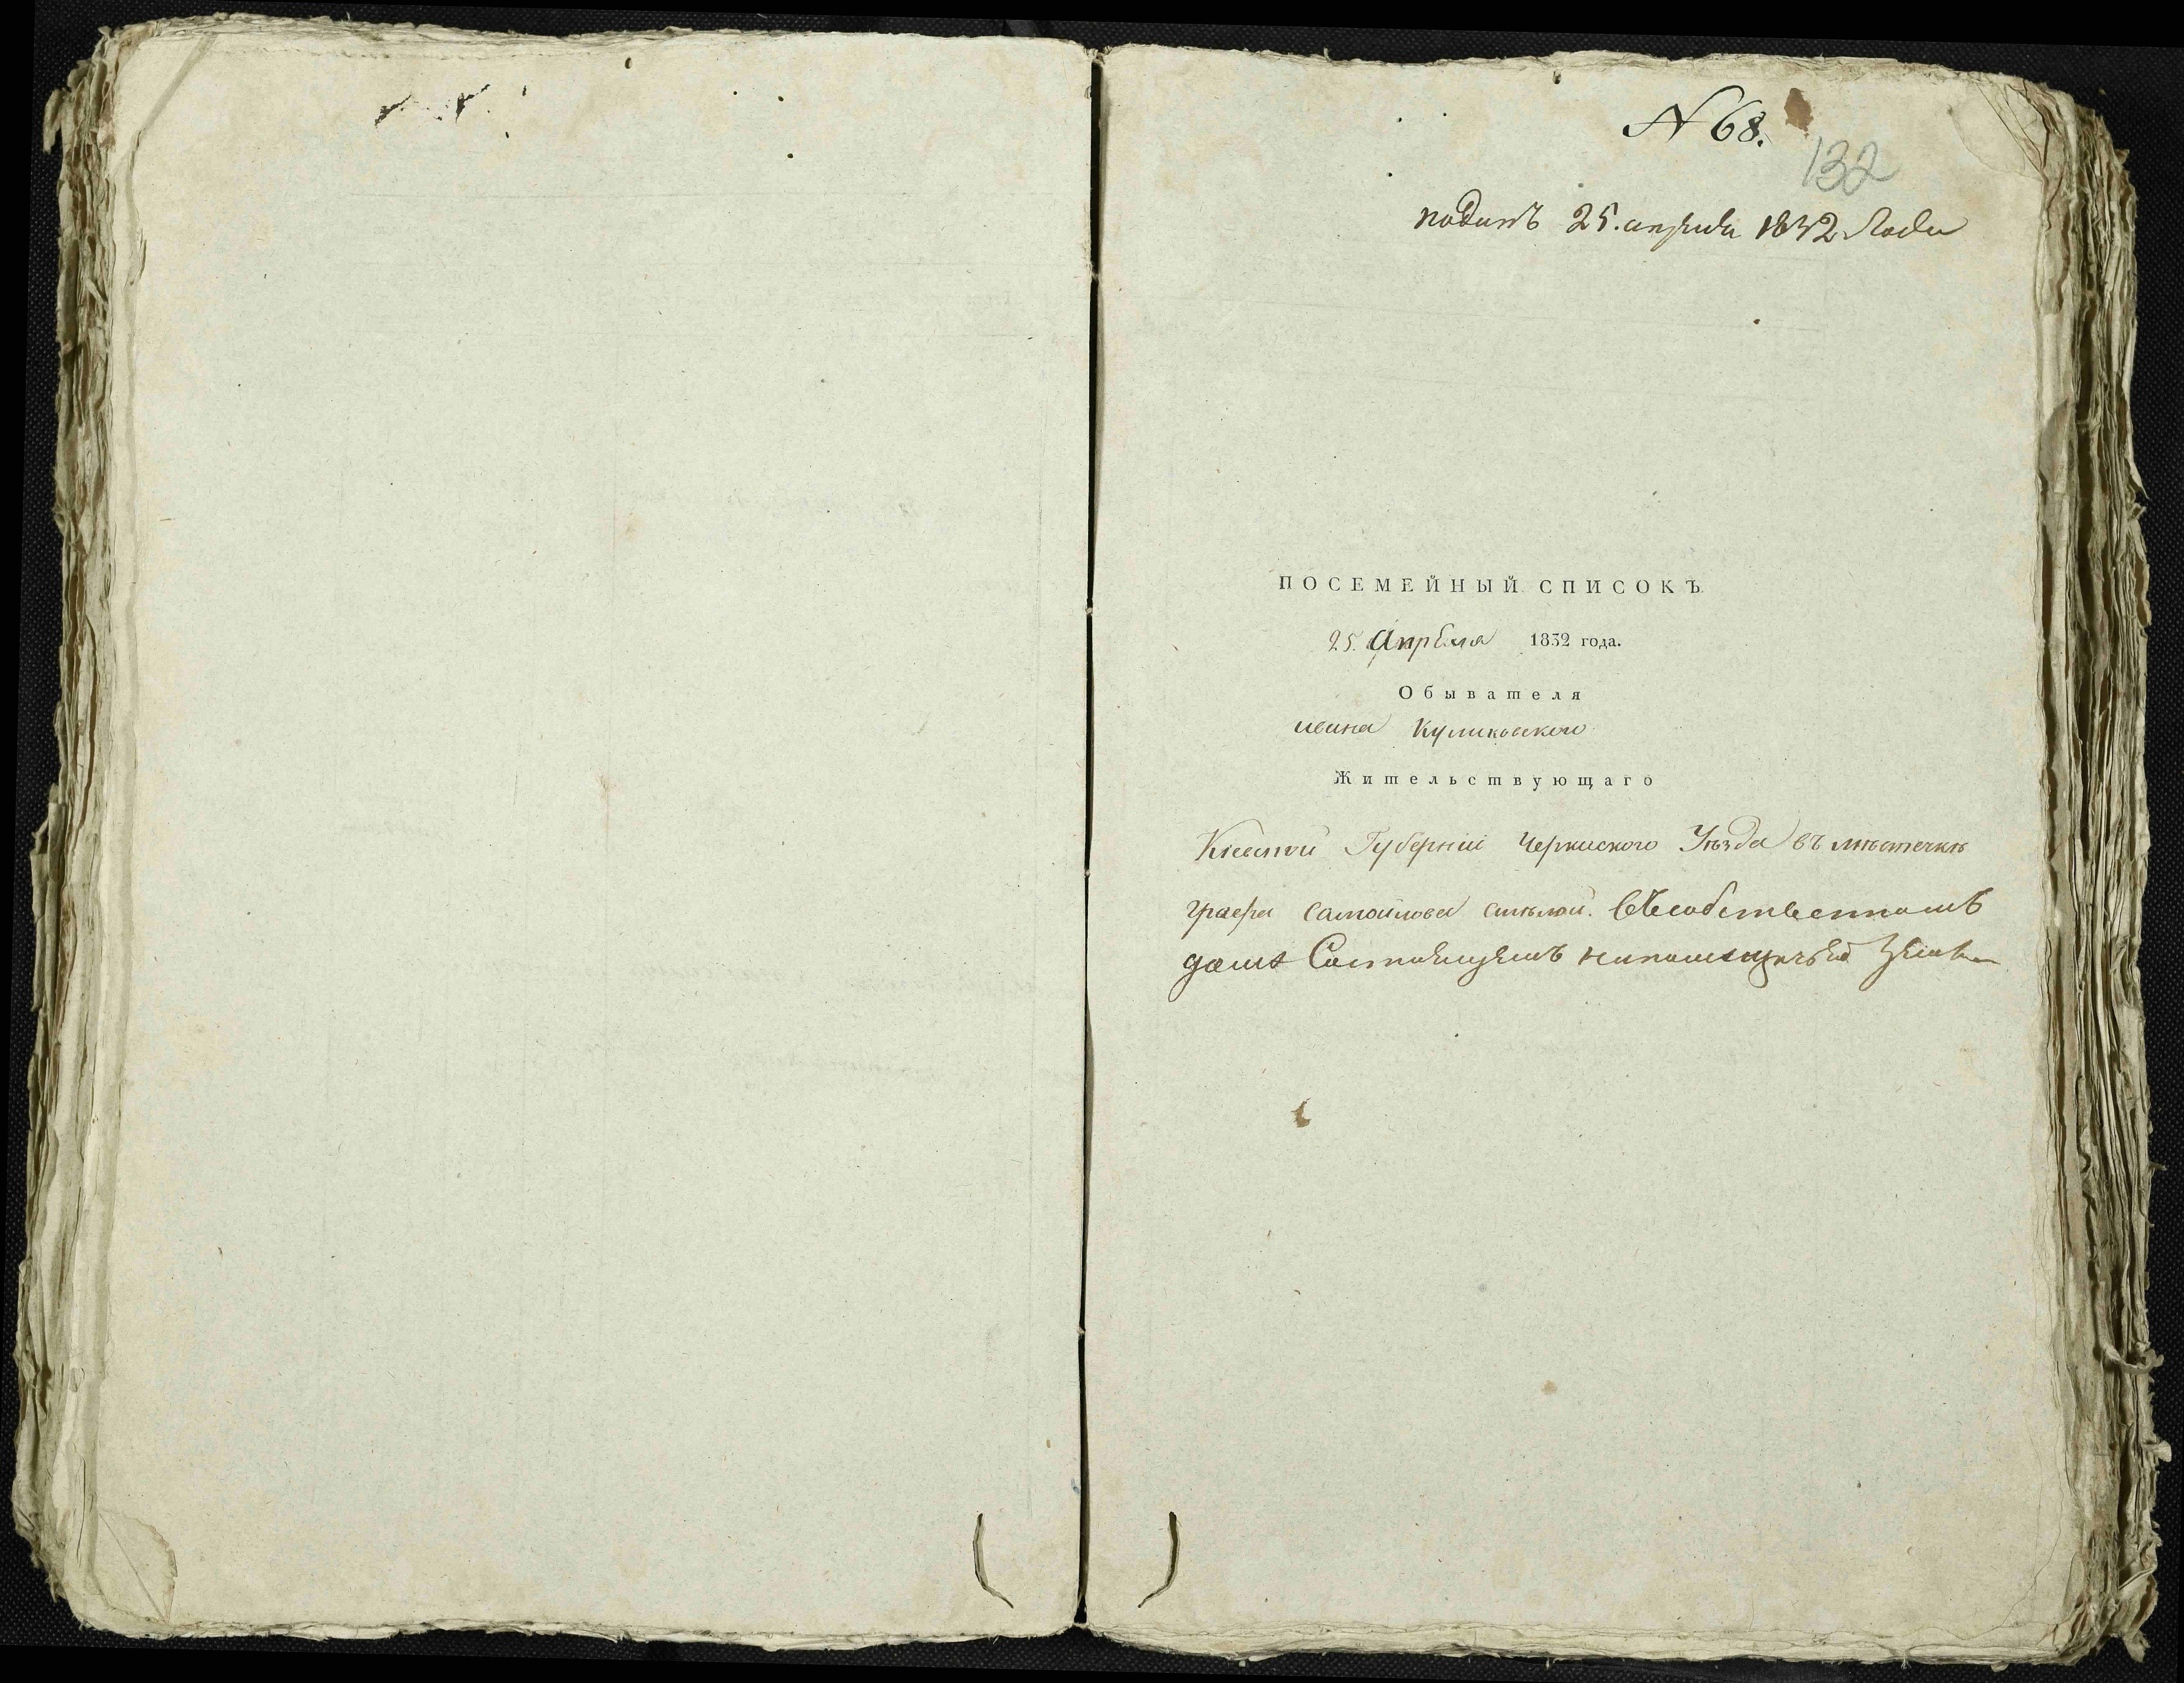 N 68.
132
подан 25. апреля 1832 Года
ПОСЕМЕЙНЫЙ СПИСОКЪ
25. Апреля 1832 года.
Обывателя
ивана Куликовского
Жительствующаго
Киевской Губернии Черкаского Уезда въ местечке
графа самойлова смелой. въ собственномъ
доме Состоящемъ на помещичьей земле